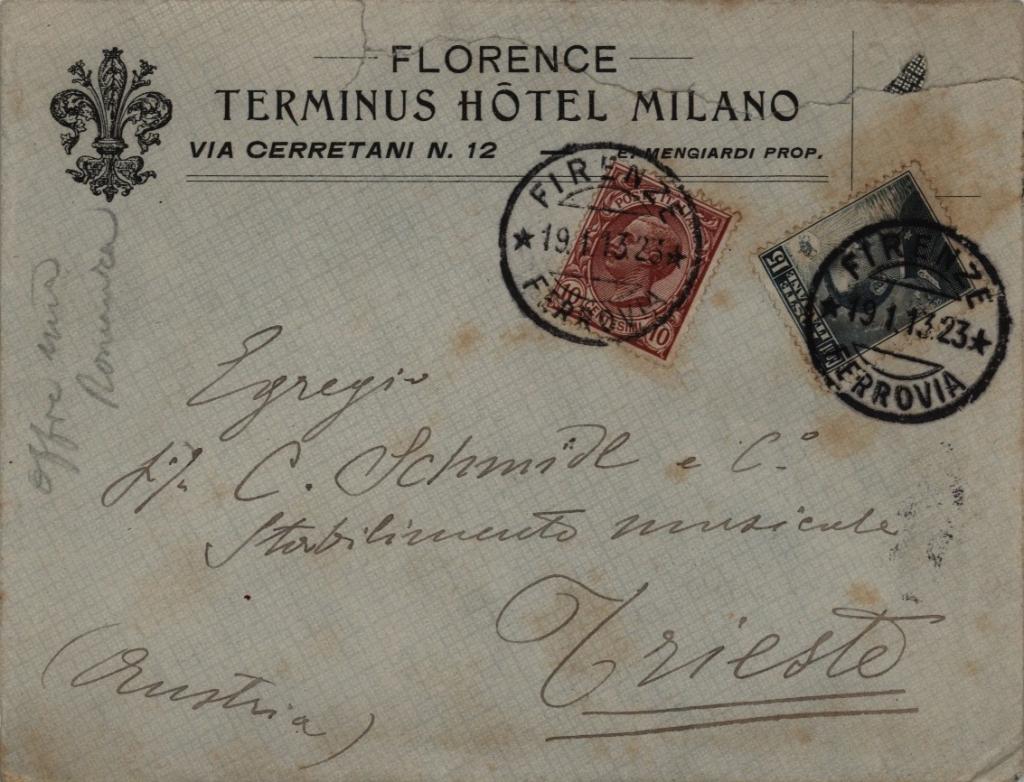 FLORENCE
TERMINUS HÔTEL MILANO
VIA CERRETANI N. 12
E. MENGIARDI PROP.
FIRENZE
19.1.13.23
FERROVIA
POSTE ITALIANE
10 CENTESIMI 10
FIRENZE
19.1.13.23
FERROVIA
15
Egregio
C. Schmidl e C.o
Stabilimento musicale
Trieste
(Austria)
Offre una